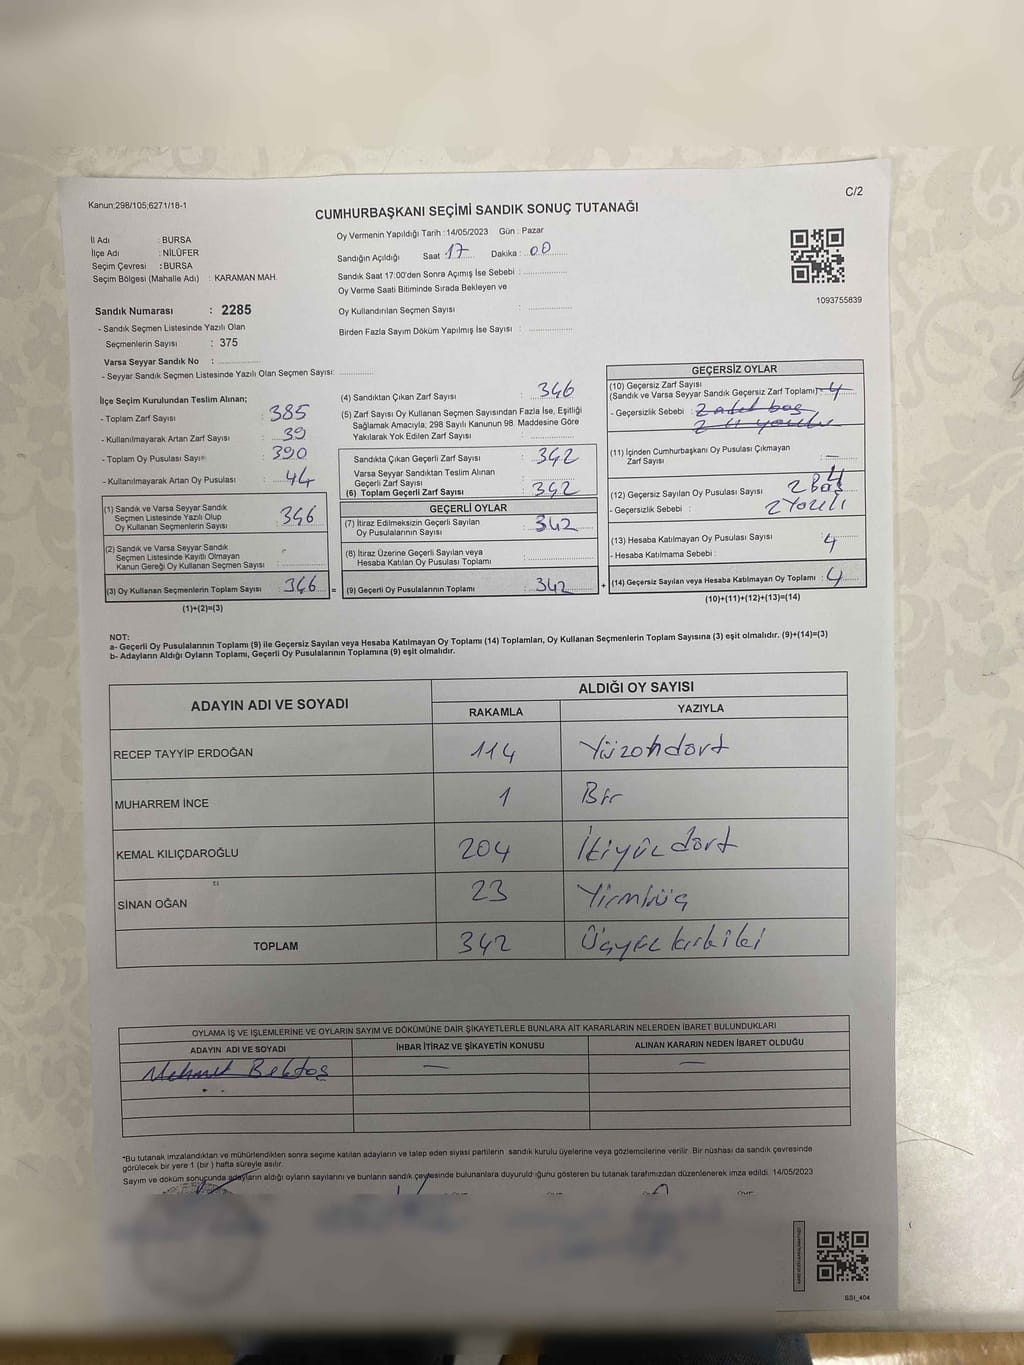 Kanun;298/105;6271/18-1
C/2
CUMHURBAŞKANI SEÇİMİ SANDIK SONUÇ TUTANAĞI
İl Adı : BURSA
İlçe Adı : NİLÜFER
Seçim Çevresi : BURSA
Seçim Bölgesi (Mahalle Adı) : KARAMAN MAH.
Oy Vermenin Yapıldığı Tarih : 14/05/2023 Gün : Pazar
Sandığın Açıldığı Saat 17 Dakika : 00
Sandık Saat 17:00'den Sonra Açımış İse Sebebi :
Oy Verme Saati Bitiminde Sırada Bekleyen ve
Oy Kullandırılan Seçmen Sayısı :
Birden Fazla Sayım Döküm Yapılmış İse Sayısı :
1093755839
Sandık Numarası : 2285
- Sandık Seçmen Listesinde Yazılı Olan
Seçmenlerin Sayısı : 375
Varsa Seyyar Sandık No :
- Seyyar Sandık Seçmen Listesinde Yazılı Olan Seçmen Sayısı:
İlçe Seçim Kurulundan Teslim Alınan;
- Toplam Zarf Sayısı : 385
- Kullanılmayarak Artan Zarf Sayısı : 39
- Toplam Oy Pusulası Sayısı : 390
- Kullanılmayarak Artan Oy Pusulası : 44
(1) Sandık ve Varsa Seyyar Sandık
Seçmen Listesinde Yazılı Olup
Oy Kullanan Seçmenlerin Sayısı : 346
(2) Sandık ve Varsa Seyyar Sandık
Seçmen Listesinde Kayıtlı Olmayan
Kanun Gereği Oy Kullanan Seçmen Sayısı :
(3) Oy Kullanan Seçmenlerin Toplam Sayısı : 346
(1)+(2)=(3)
(4) Sandıktan Çıkan Zarf Sayısı : 346
(5) Zarf Sayısı Oy Kullanan Seçmen Sayısından Fazla İse, Eşitliği
Sağlamak Amacıyla; 298 Sayılı Kanunun 98. Maddesine Göre
Yakılarak Yok Edilen Zarf Sayısı :
Sandıkta Çıkan Geçerli Zarf Sayısı : 342
Varsa Seyyar Sandıktan Teslim Alınan
Geçerli Zarf Sayısı :
(6) Toplam Geçerli Zarf Sayısı : 342
GEÇERLİ OYLAR
(7) İtiraz Edilmeksizin Geçerli Sayılan
Oy Pusulalarının Sayısı : 342
(8) İtiraz Üzerine Geçerli Sayılan veya
Hesaba Katılan Oy Pusulası Toplamı :
= (9) Geçerli Oy Pusulalarının Toplamı : 342 +
GEÇERSİZ OYLAR
(10) Geçersiz Zarf Sayısı
(Sandık ve Varsa Seyyar Sandık Geçersiz Zarf Toplamı) : 4
- Geçersizlik Sebebi : 2 adet boş
(11) İçinden Cumhurbaşkanı Oy Pusulası Çıkmayan
Zarf Sayısı : —
(12) Geçersiz Sayılan Oy Pusulası Sayısı : 4
2 Boş
- Geçersizlik Sebebi : 2 Yazılı
(13) Hesaba Katılmayan Oy Pusulası Sayısı : 4
- Hesaba Katılmama Sebebi :
(14) Geçersiz Sayılan veya Hesaba Katılmayan Oy Toplamı : 4
(10)+(11)+(12)+(13)=(14)
NOT:
a- Geçerli Oy Pusulalarının Toplamı (9) ile Geçersiz Sayılan veya Hesaba Katılmayan Oy Toplamı (14) Toplamları, Oy Kullanan Seçmenlerin Toplam Sayısına (3) eşit olmalıdır. (9)+(14)=(3)
b- Adayların Aldığı Oyların Toplamı, Geçerli Oy Pusulalarının Toplamına (9) eşit olmalıdır.
ADAYIN ADI VE SOYADI
ALDIĞI OY SAYISI
RAKAMLA YAZIYLA
RECEP TAYYİP ERDOĞAN 114 Yüzondört
MUHARREM İNCE 1 Bir
KEMAL KILIÇDAROĞLU 204 İkiyüz dört
SİNAN OĞAN 23 Yirmiüç
TOPLAM 342 Üçyüz kırkiki
OYLAMA İŞ VE İŞLEMLERİNE VE OYLARIN SAYIM VE DÖKÜMÜNE DAİR ŞİKAYETLERLE BUNLARA AİT KARARLARIN NELERDEN İBARET BULUNDUKLARI
ADAYIN ADI VE SOYADI İHBAR İTİRAZ VE ŞİKAYETİN KONUSU ALINAN KARARIN NEDEN İBARET OLDUĞU
Mehmet Bektaş — —
*Bu tutanak imzalandıktan ve mühürlendikten sonra seçime katılan adayların ve talep eden siyasi partilerin sandık kurulu üyelerine veya gözlemcilerine verilir. Bir nüshası da sandık çevresinde
görülecek bir yere 1 (bir) hafta süreyle asılır.
Sayım ve döküm sonucunda adayların aldığı oyların sayılarını ve bunların sandık çevresinde bulunanlara duyurulduğunu gösteren bu tutanak tarafımızdan düzenlenerek imza edildi. 14/05/2023
SSI_404